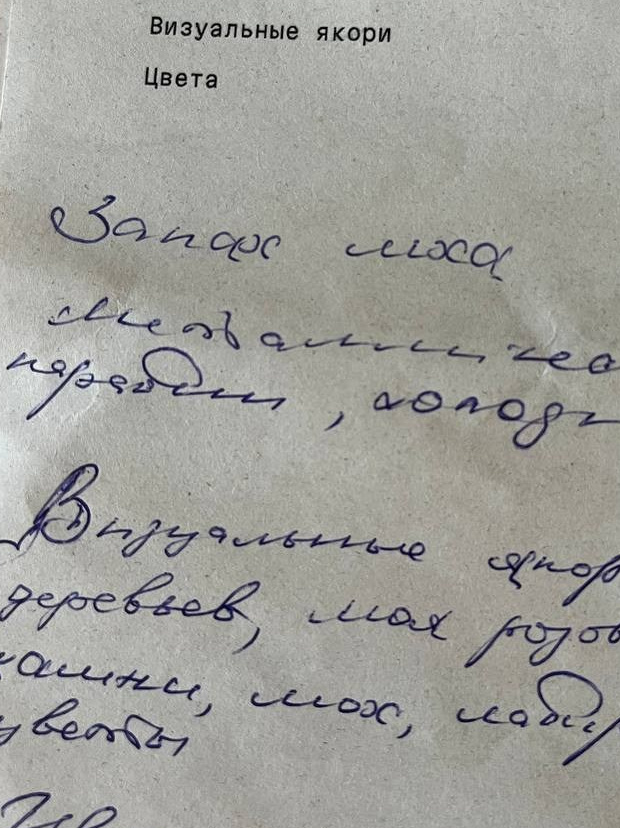 Визуальные якори
Цвета
Запах мха
Металличес
карабин, холодн
Визуальные якор
деревьев, мох розов
камни, мох, лабир
цветы